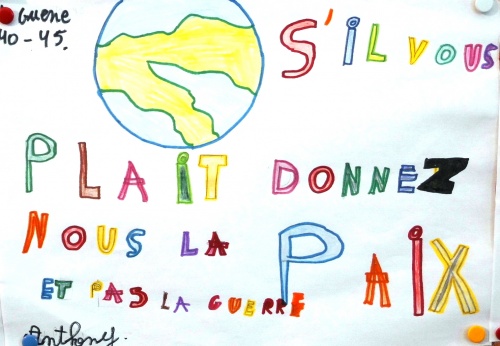 Guerre
40-45.
S'IL VOUS
PLAiT DONNEZ
NOUS LA PAiX
ET PAS LA GUERRE
Anthony.